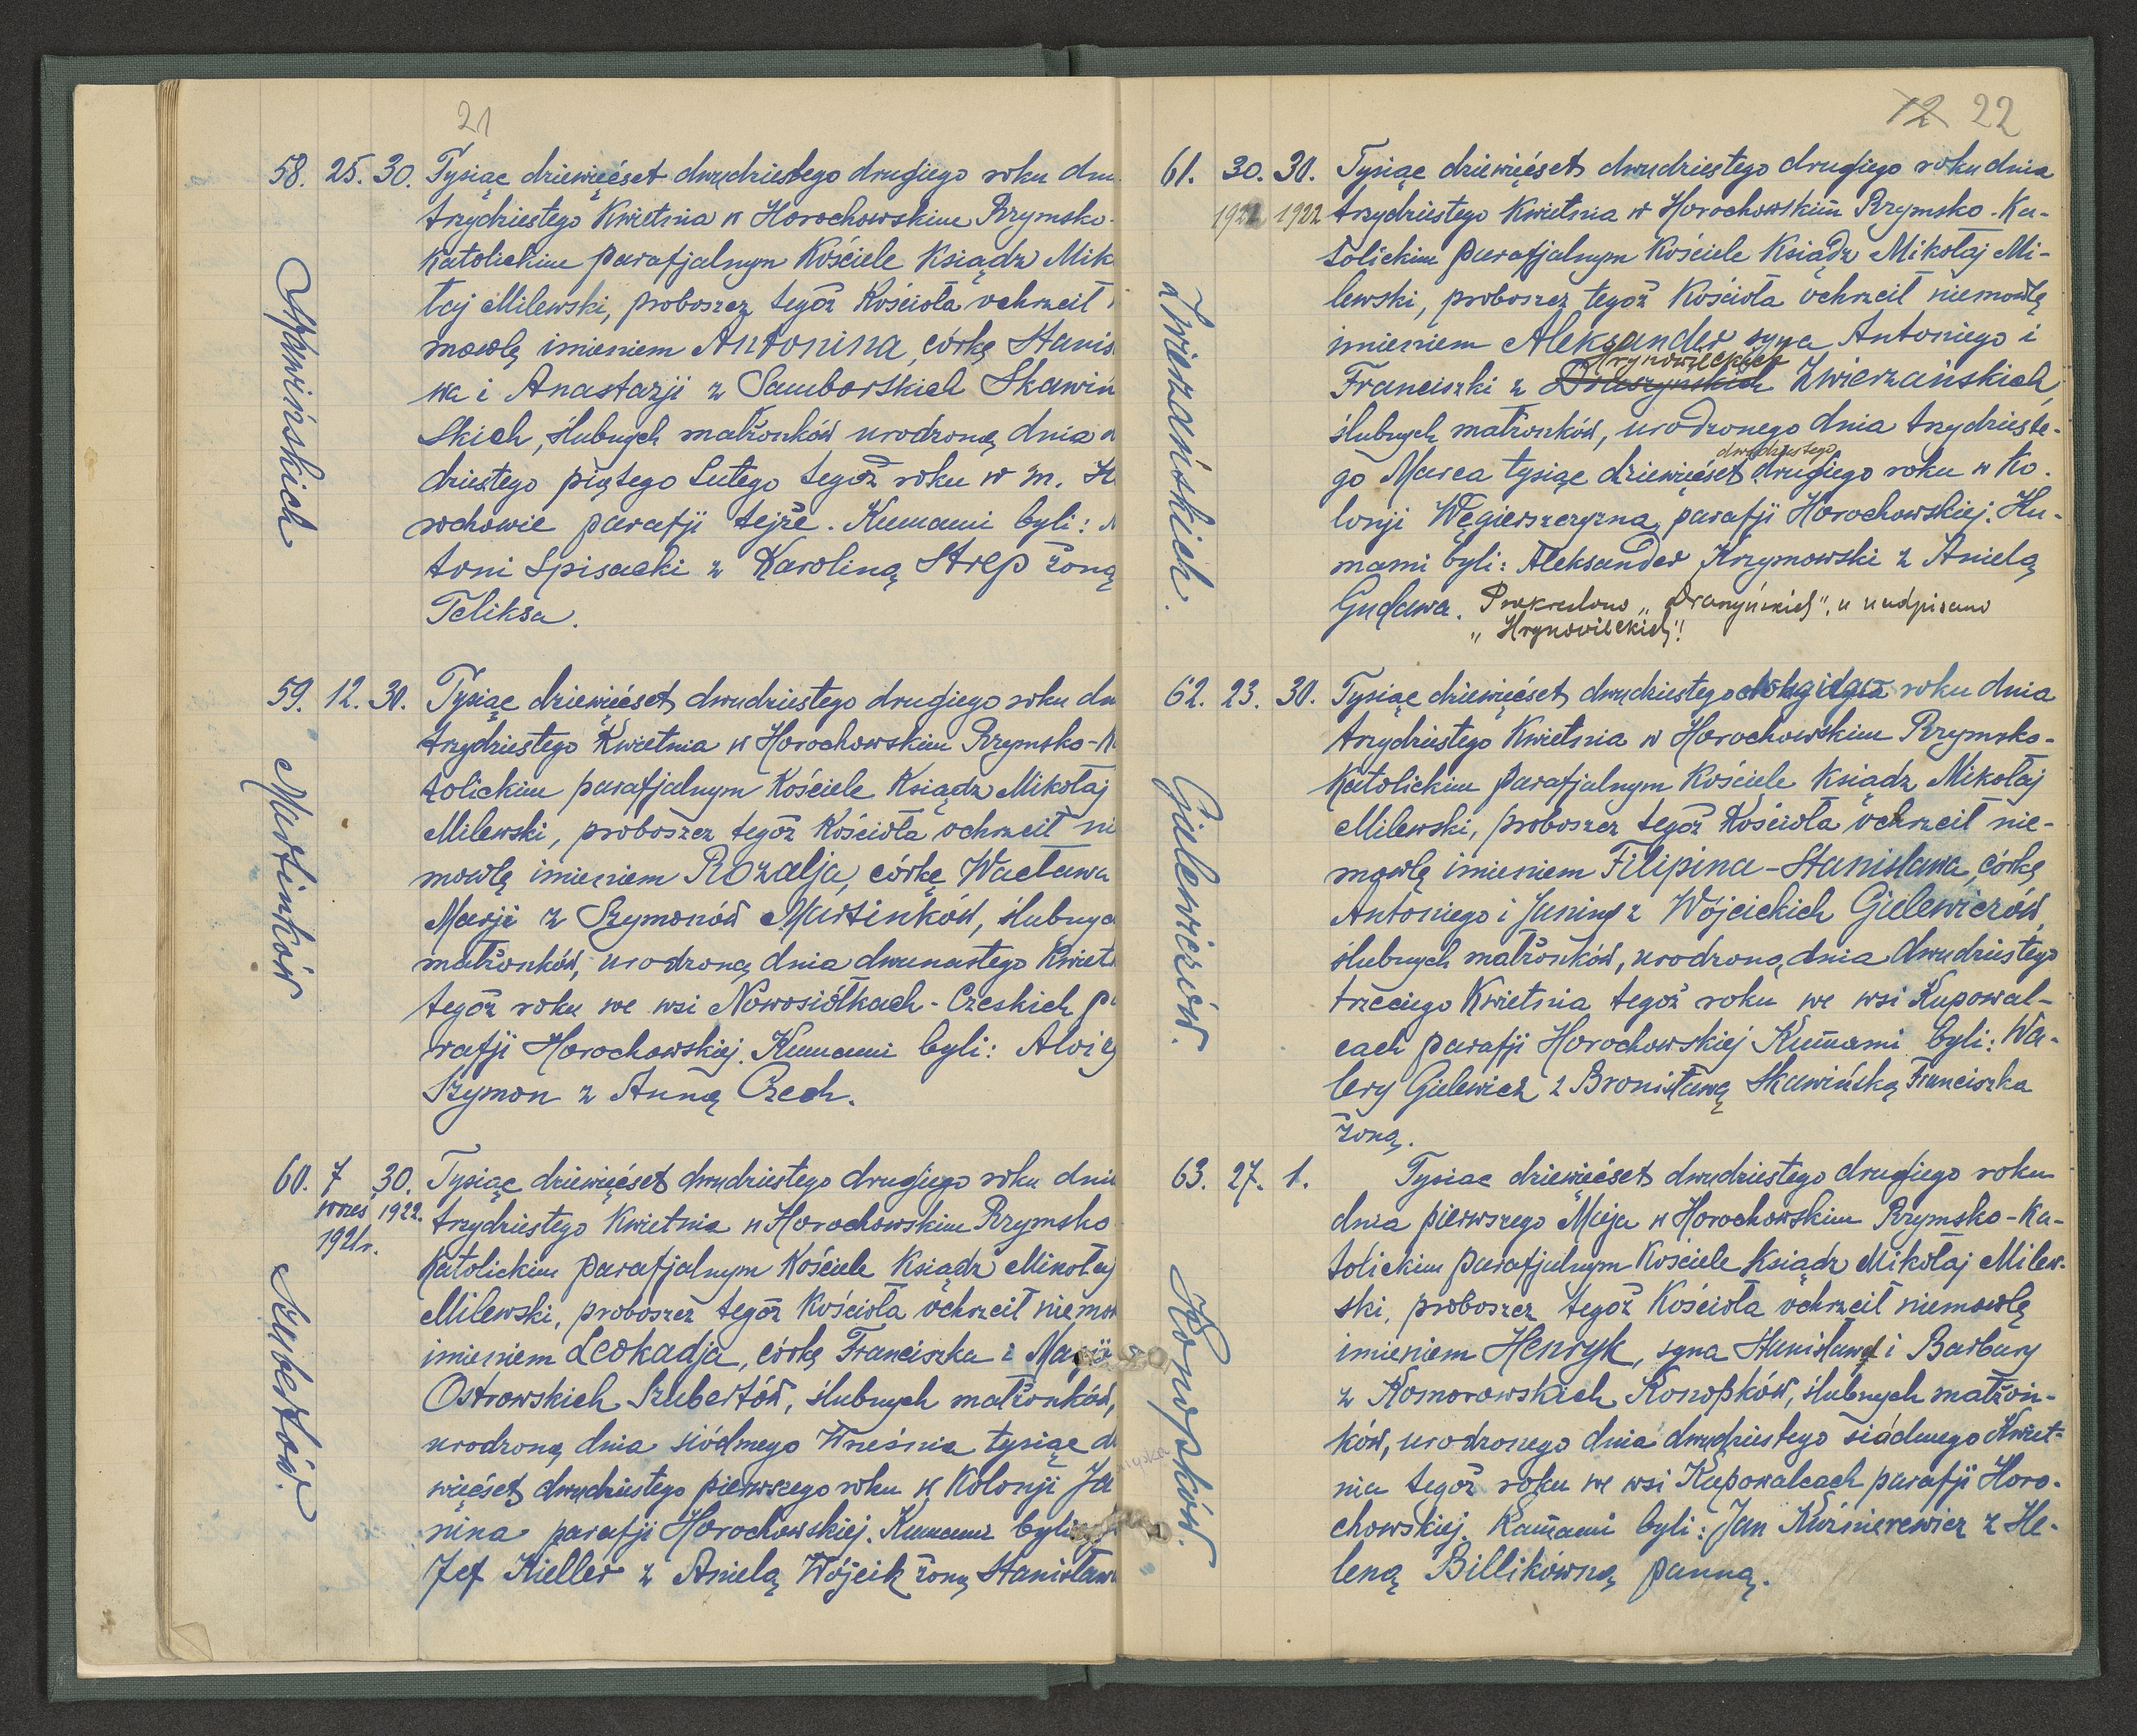 21
58. 25. 30. Tysiąc dziewięćset dwudziestego drugiego roku dni
trzydziestego Kwietnia w Horochowskim Rzymsko-
Katolickim parafjalnym Kościele Ksiądz Mik
łaj Milewski, proboszcz tegoż Kościoła ochrzcił
mowlę imieniem Antonina, córkę Stanis
wa i Anastazji z Samborskich Skawiń
skich, ślubnych małżonków urodzoną dnia
dziestego piątego Lutego tegoż roku w m. H
rochowie parafji tejże. Kumami byli:
toni Spisacki z Karoliną Strep żoną
Feliksa.
Skawińskich
59. 12. 30. Tysiąc dziewięćset dwudziestego drugiego roku dn
trzydziestego Kwietnia w Horochowskim Rzymsko-K
tolickim parafjalnym Kościele Ksiądz Mikołaj
Milewski, proboszcz tegoż Kościoła ochrzcił ni
mowlę imieniem Rozalja, córkę Wacława
Marji z Szymonów Martinków, ślubnyc
małżonków, urodzoną dnia dwunastego Kwiet
tegoż roku we wsi Nowosiółkach-Czeskich p
rafji Horochowskiej. Kumami byli: Alojzy
Szymon z Anną Czech.
Martinków
60. 7 30. Tysiąc dziewięćset dwudziestego drugiego roku dni
wrześ 1922. trzydziestego Kwietnia w Horochowskim Rzymsko
1921r.
Katolickim parafjalnym Kościele Ksiądz Mikołaj
Milewski, proboszcz tegoż Kościoła ochrzcił niemow
imieniem Leokadja, córkę Franciszka i Marji
Ostrowskich Szubertów, ślubnych małżonków,
urodzoną dnia siódmego Września tysiąc d
więćset dwudziestego pierwszego roku w Kolonji Ja
nina parafji Horochowskiej. Kumami byli
Jef Kieller z Anielą Wójcik żoną Stanisław
Szubertów.
12 22
61. 30. 30. Tysiąc dziewięćset dwudziestego drugiego roku dnia
1922 1922 trzydziestego Kwietnia w Horochowskim Rzymsko-Ka-
tolickim parafjalnym Kościele Ksiądz Mikołaj Mi-
lewski, proboszcz tegoż Kościoła ochrzcił niemowlę
imieniem Aleksander syna Antoniego i
Hrynowieckich
Franciszki z Draszyńskich Zwierzańskich,
ślubnych małżonków, urodzonego dnia trzydzieste-
dwudziestego
go Marca tysiąc dziewięćset drugiego roku w Ko-
lonji Węgierszczyzna, parafji Horochowskiej. Ku-
mami byli: Aleksander Krzymowski z Anielą
Gudawa. Przekreślono "Draszyńskich", a nadpisano
"Hrynowieckich"!
Zwierzańskich.
62. 23. 30. Tysiąc dziewięćset dwudziestego drugiego roku dnia
trzydziestego Kwietnia w Horochowskim Rzymsko-
Katolickim parafjalnym Kościele Ksiądz Mikołaj
Milewski, proboszcz tegoż Kościoła ochrzcił nie-
mowlę imieniem Filipina-Stanisława, córkę
Antoniego i Janiny z Wójcickich Gielewiczów,
ślubnych małżonków, urodzoną dnia dwudziestego
trzeciego Kwietnia tegoż roku we wsi Kupowal-
cach parafji Horochowskiej Kumami byli: Wa-
lery Gielewicz z Bronisławą Skawińską Franciszka
żoną.
Gielewiczów.
63. 27. 1. Tysiac dziewięćset dwudziestego drugiego roku
dnia pierwszego Maja w Horochowskim Rzymsko-Ka-
tolickim parafjalnym Kościele Ksiądz Mikołaj Milew-
ski, proboszcz tegoż Kościoła ochrzcił niemowlę
imieniem Henryk, syna Stanisława i Barbary
z Komorowskich Konopków, ślubnych małżon-
ków, urodzonego dnia dwudziestego siódmego Kwiet-
nia tegoż roku we wsi Kupowalcach parafji Horo-
chowskiej. Kumami byli: Jan Kuźnierewicz z He-
leną Billikówną panną.
Konopków.